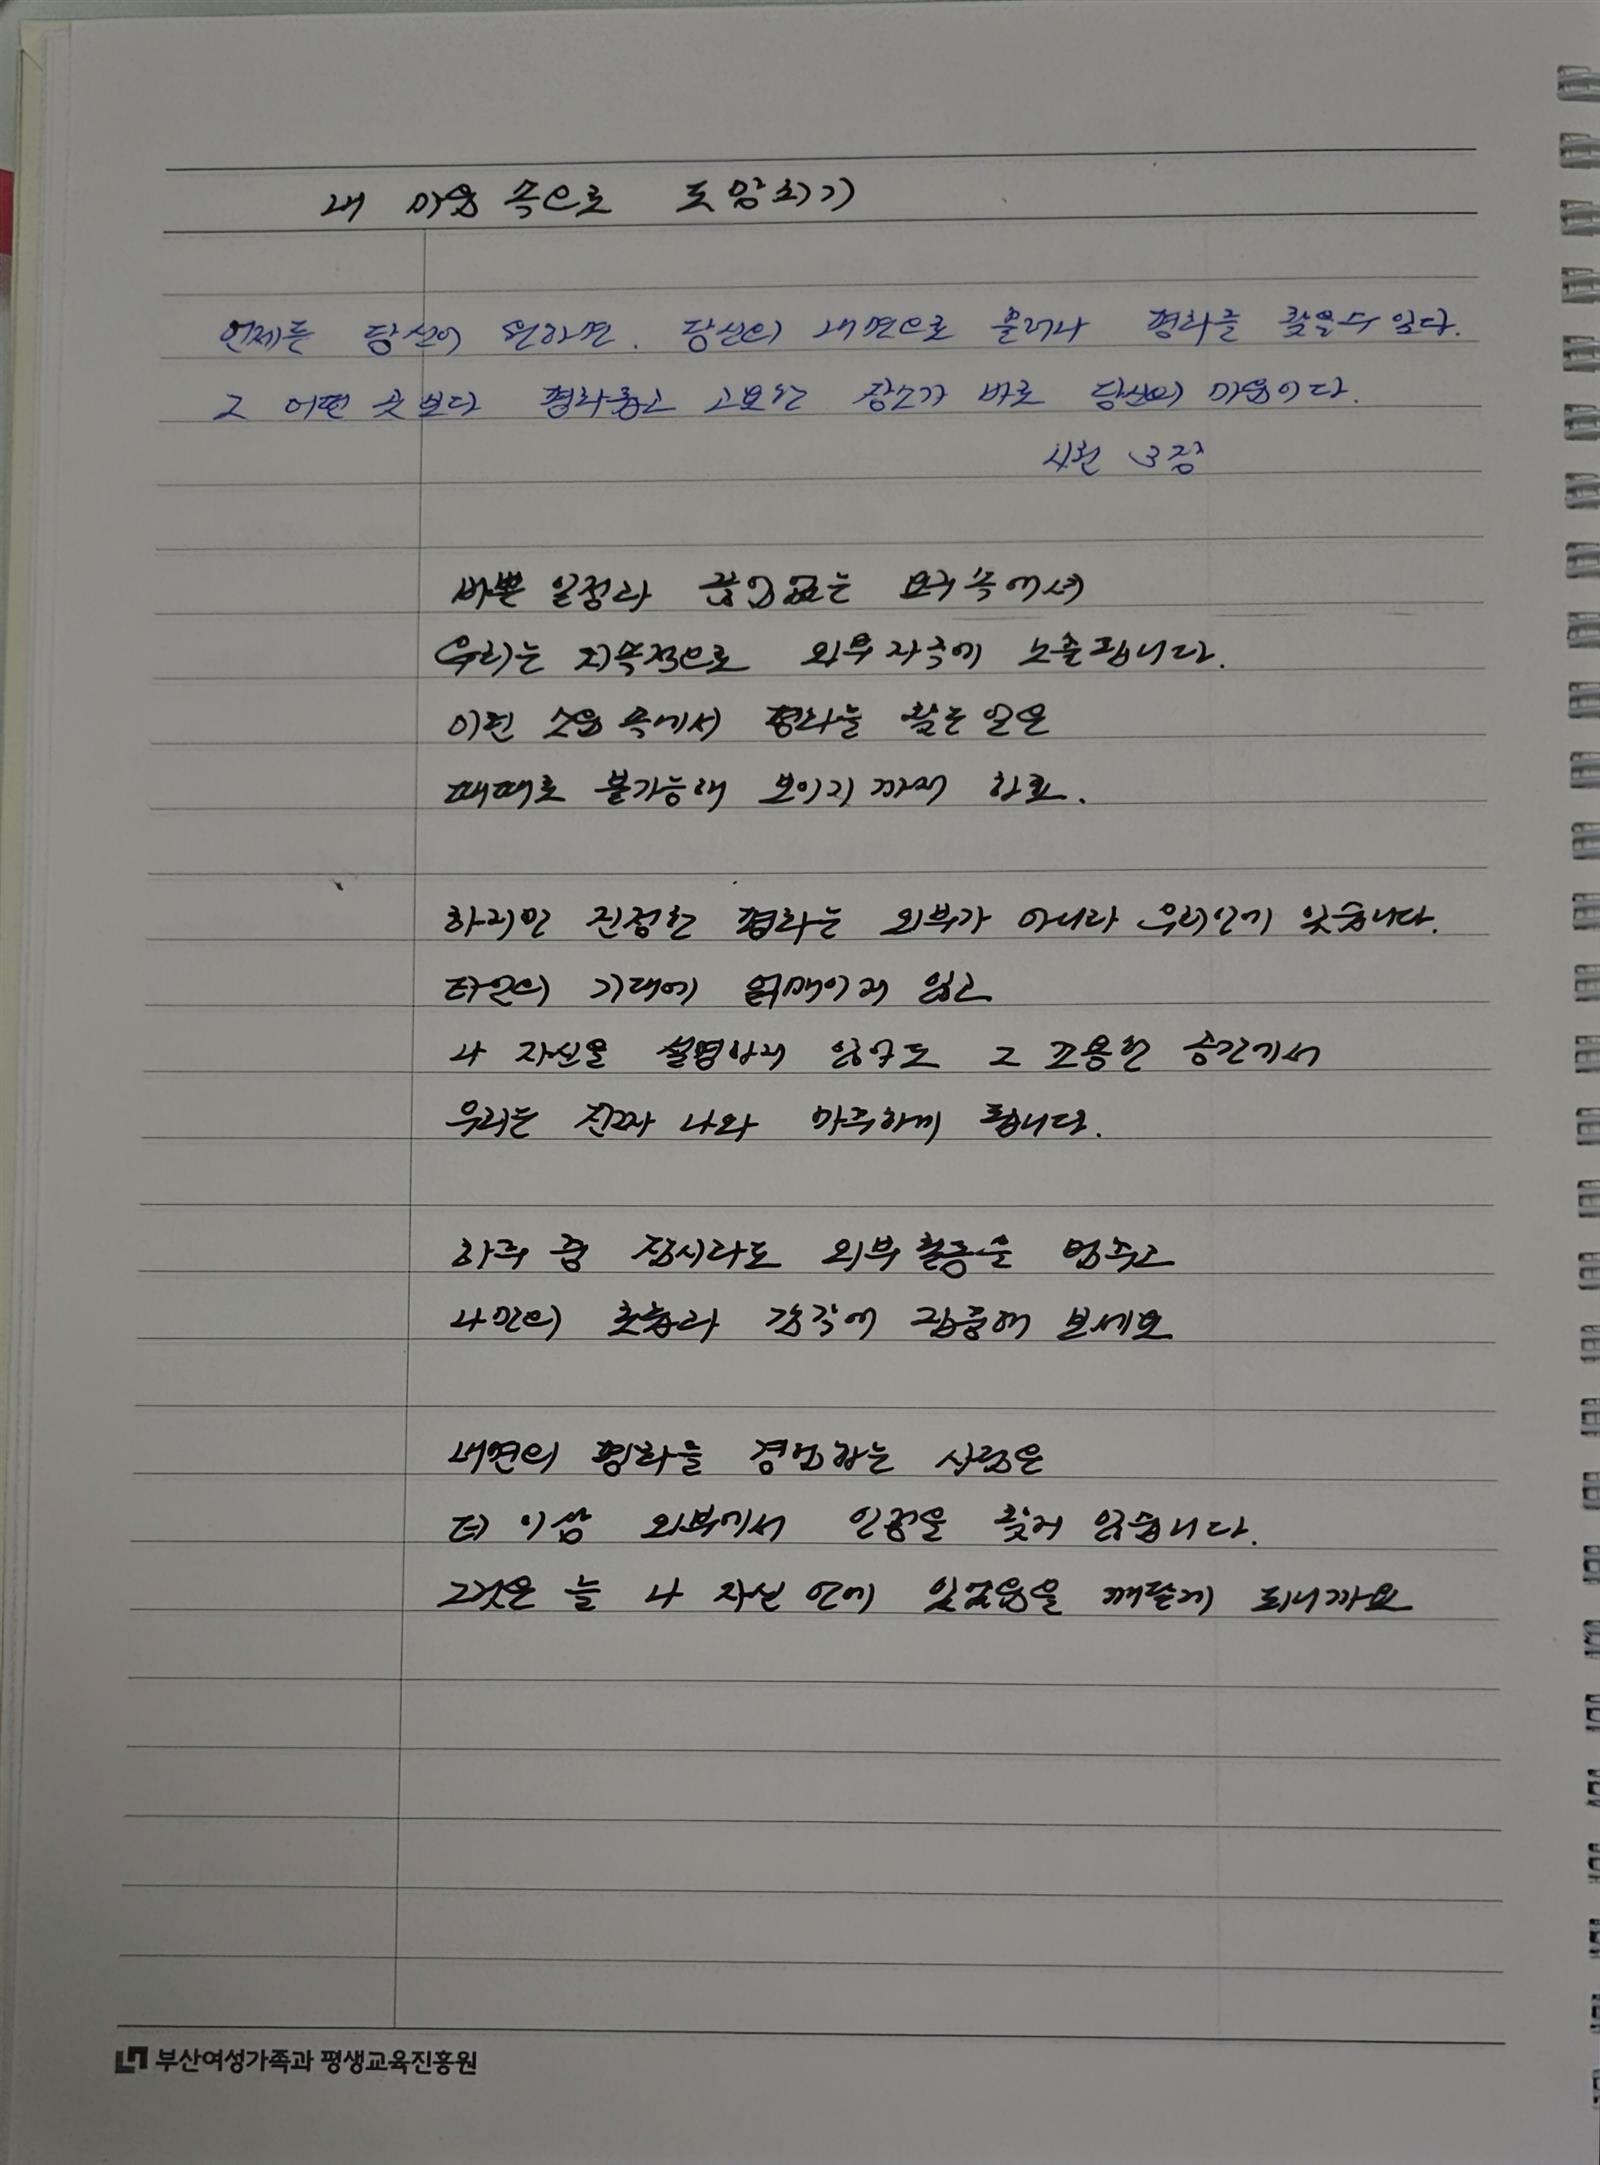 내 마음 속으로 도망치기
언제든 당신이 원하면. 당신의 내면으로 물러나 평화를 찾을 수 있다.
그 어떤 곳 보다 평화롭고 고요한 장소가 바로 당신의 마음이다.
3장
바쁜 일정과 끊임없는 요구 속에서
우리는 지속적으로 외부 자극에 노출됩니다.
이런 소음 속에서 평화를 찾는 일은
때때로 불가능해 보이기까지 하죠.
하지만 진정한 평화는 외부가 아니라 우리 안에 있습니다.
타인의 기대에 얽매이지 않고
나 자신을 설명하지 않아도 그 조용한 공간에서
우리는 진짜 나와 마주하게 됩니다.
하루 중 잠시라도 외부 활동을 멈추고
나만의 호흡과 감각에 집중해 보세요
내면의 평화를 경험하는 사람은
더 이상 외부에서 인정을 찾지 않습니다.
그것은 늘 나 자신 안에 있었음을 깨닫게 되니까요
부산여성가족과 평생교육진흥원